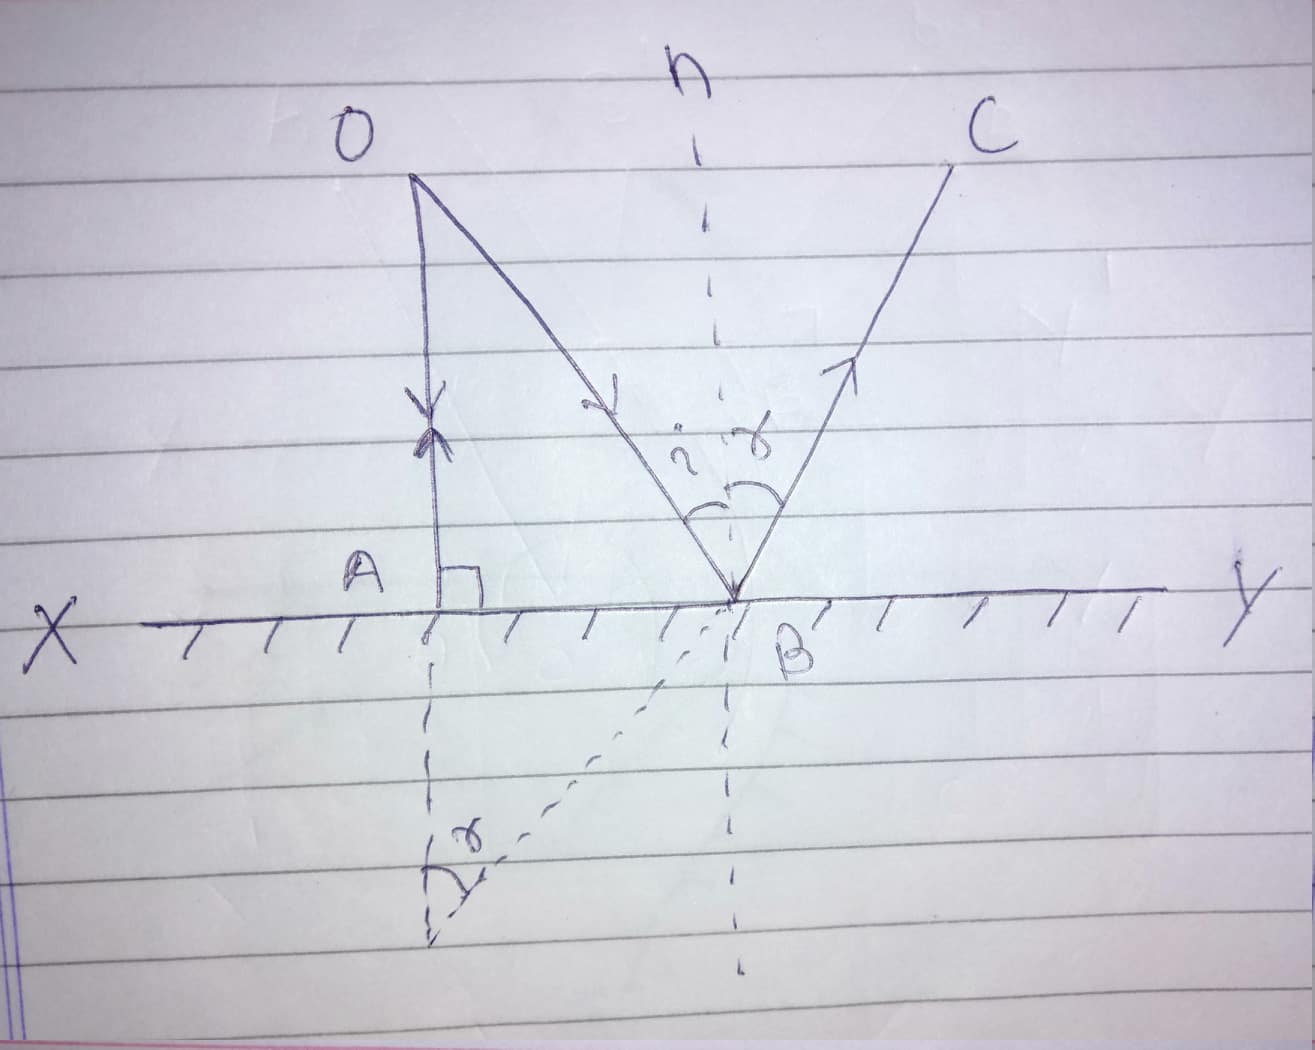 n
O C
i r
A
X Y
B
r